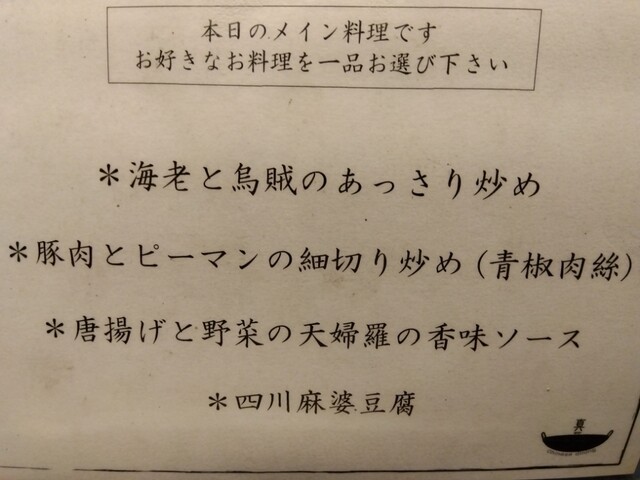 本日のメイン料理です
お好きなお料理を一品お選び下さい
＊海老と烏賊のあっさり炒め
＊豚肉とピーマンの細切り炒め(青椒肉絲)
＊唐揚げと野菜の天婦羅の香味ソース
＊四川麻婆豆腐